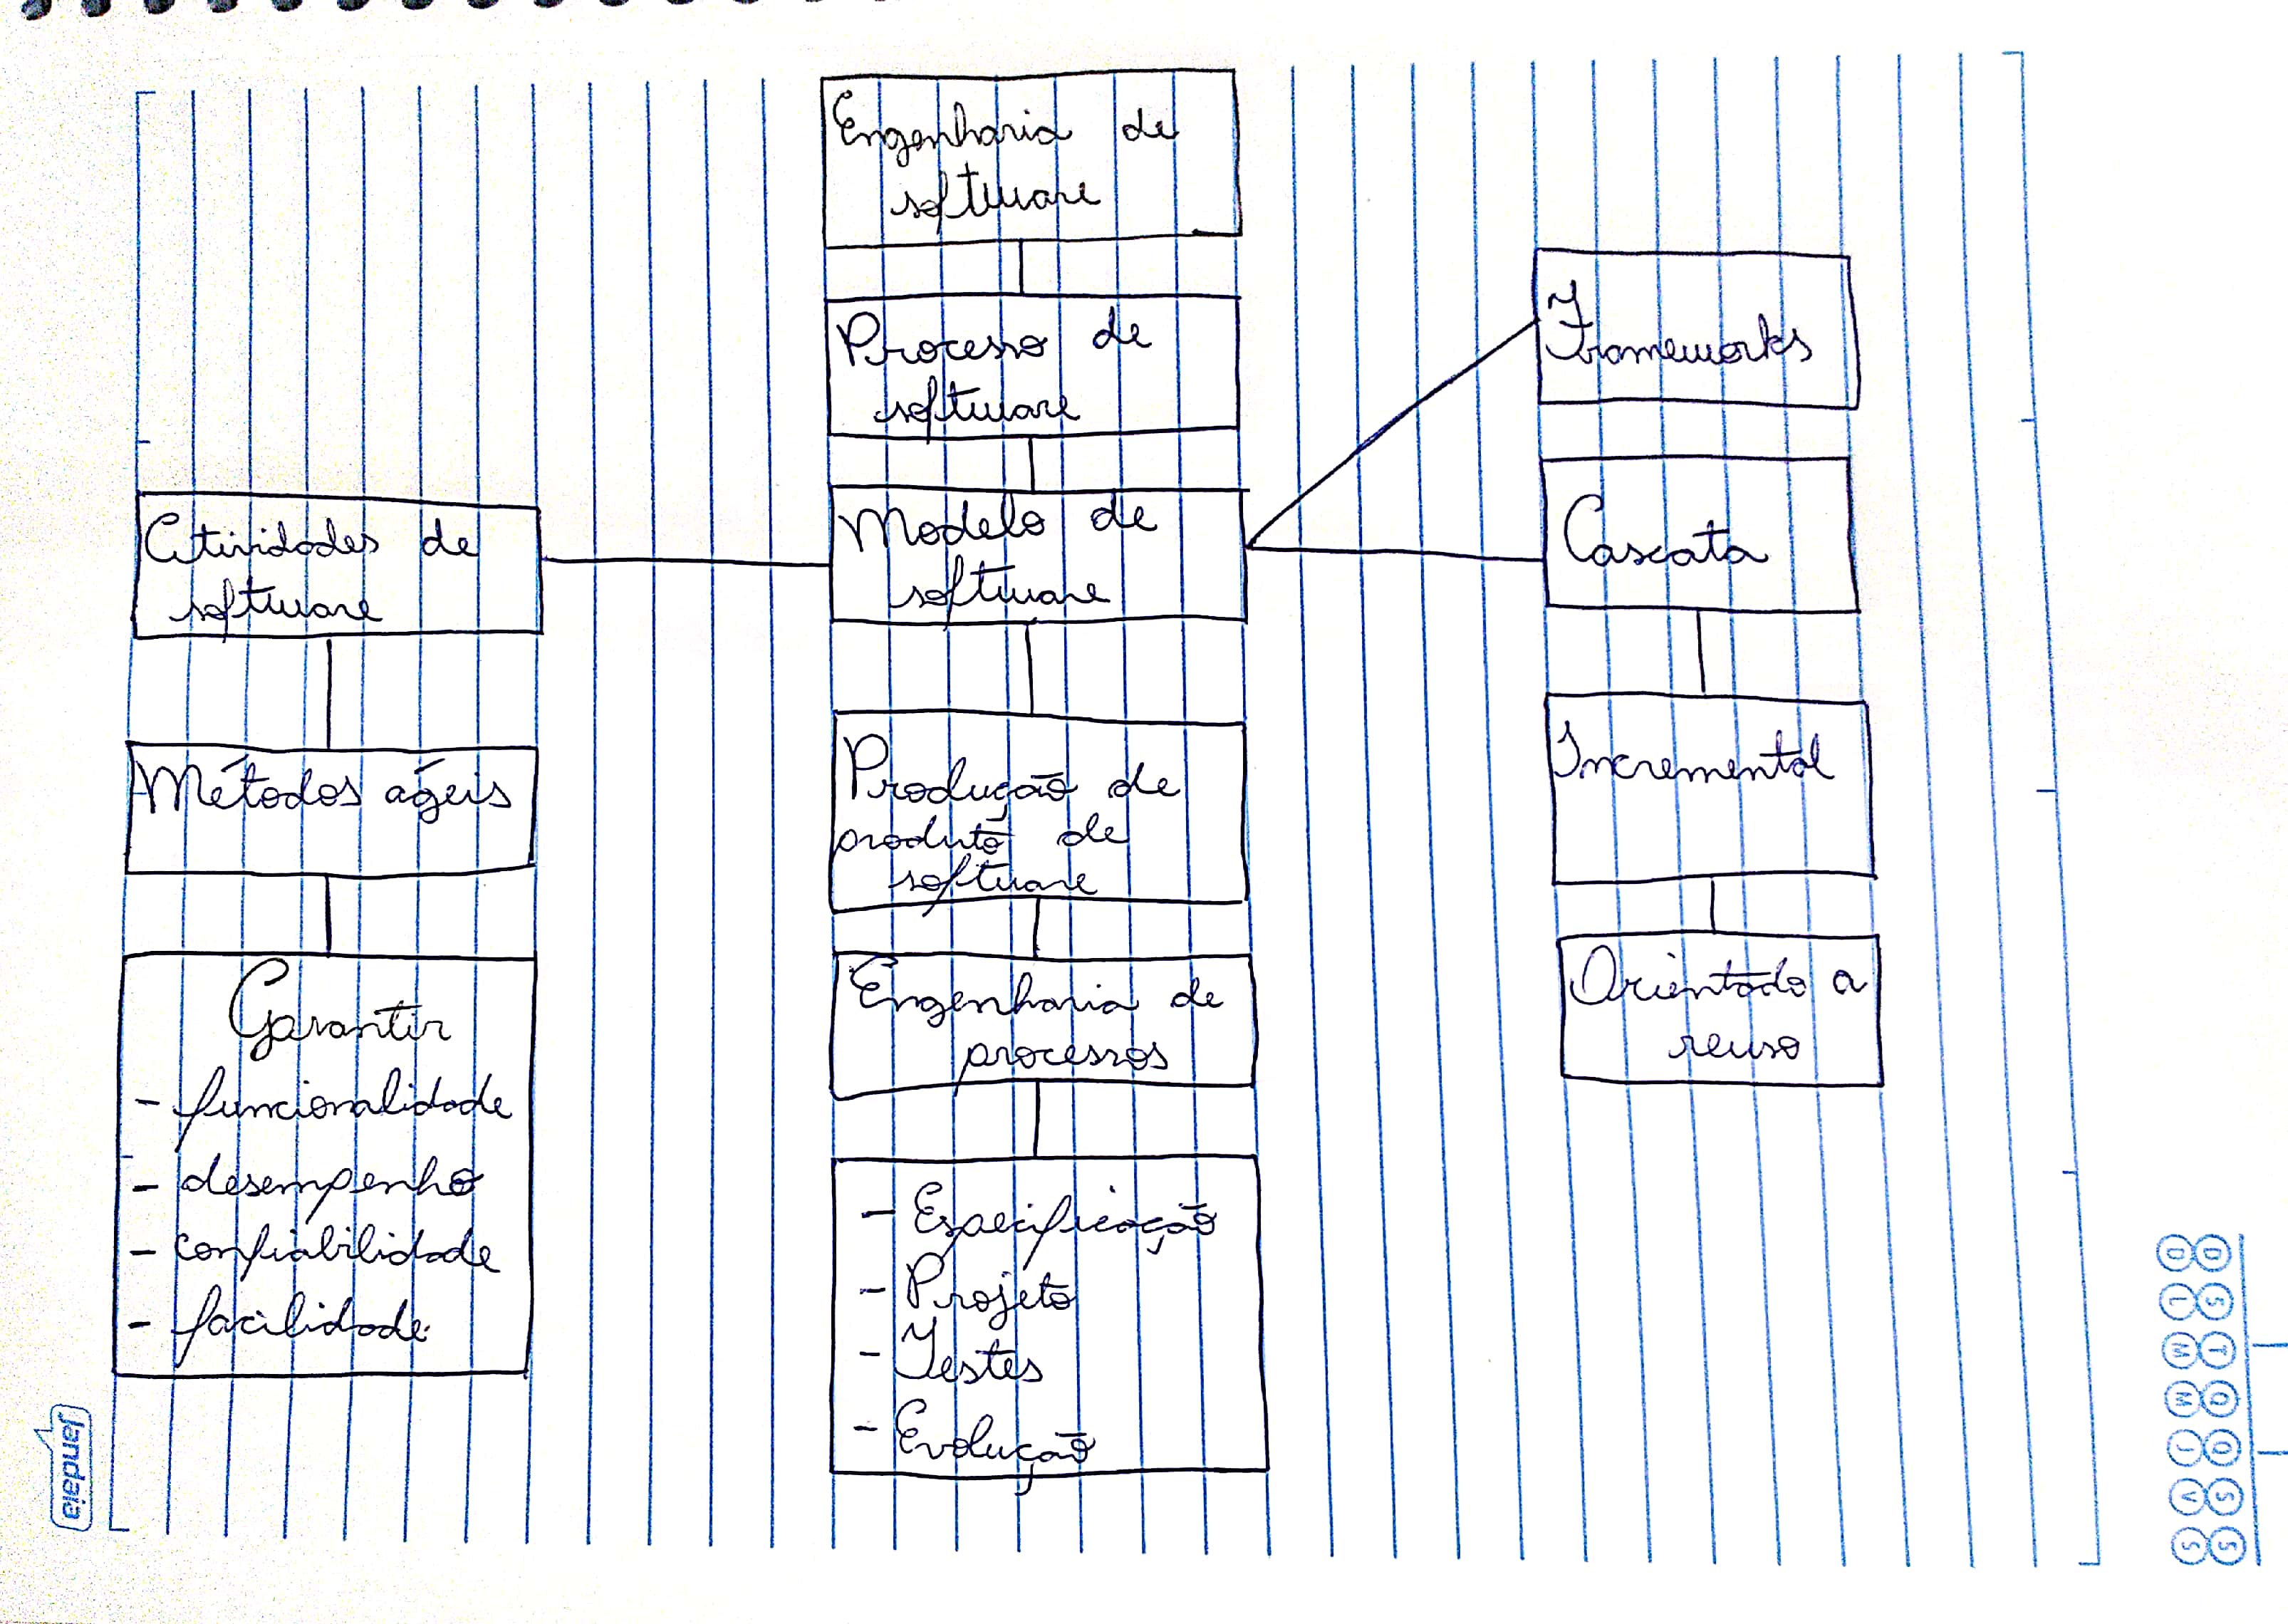 Engenharia de
software
Processo de
software
Modelo de
software
Produção de
produto de
software
Engenharia de
processos
- Especificação
- Projeto
- Testes
- Evolução
Atividades de
software
Métodos ágeis
Garantir
- funcionalidade
- desempenho
- confiabilidade
- facilidade
Frameworks
Cascata
Incremental
Orientado a
reuso
Jandaia
D S T Q Q S S
D L M M J V S